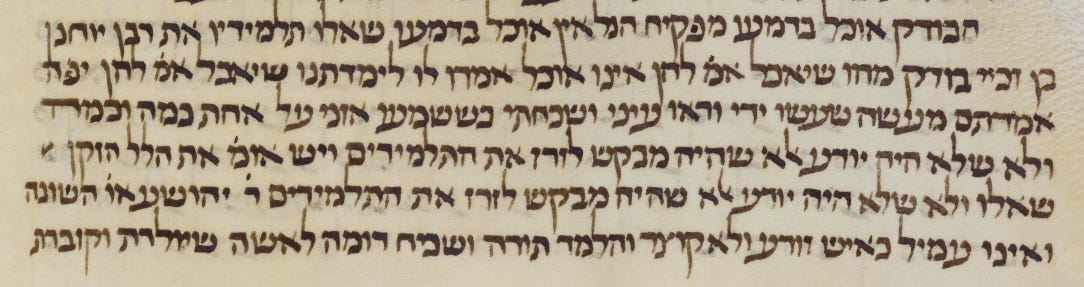 הבודק אוכל בדמעו מפקיח הגל אין אוכל בדמעו שאלו תלמידיו את רבן יוחנן
בן זכיי בודק מהו שיאכל אמ' להן אינו אוכל אמרו לו לימדתנו שיאכל אמ' להן יפה
אמרתם מעשה שעשו ידי וראו עיני ושכחתי כששמעו אזני על אחת כמה וכמה
ולא שלא היה יודע אלא שהיה מבקש לזרז את התלמידים ויש אומ' את הלל הזקן
שאלו ולא שלא היה יודע אלא שהיה מבקש לזרז את התלמידים ר' יהושע או' השונה
ואינו עמיל כאיש זורע ולא קוצר והלמד תורה ושכח דומה לאשה שיולדת וקוברת